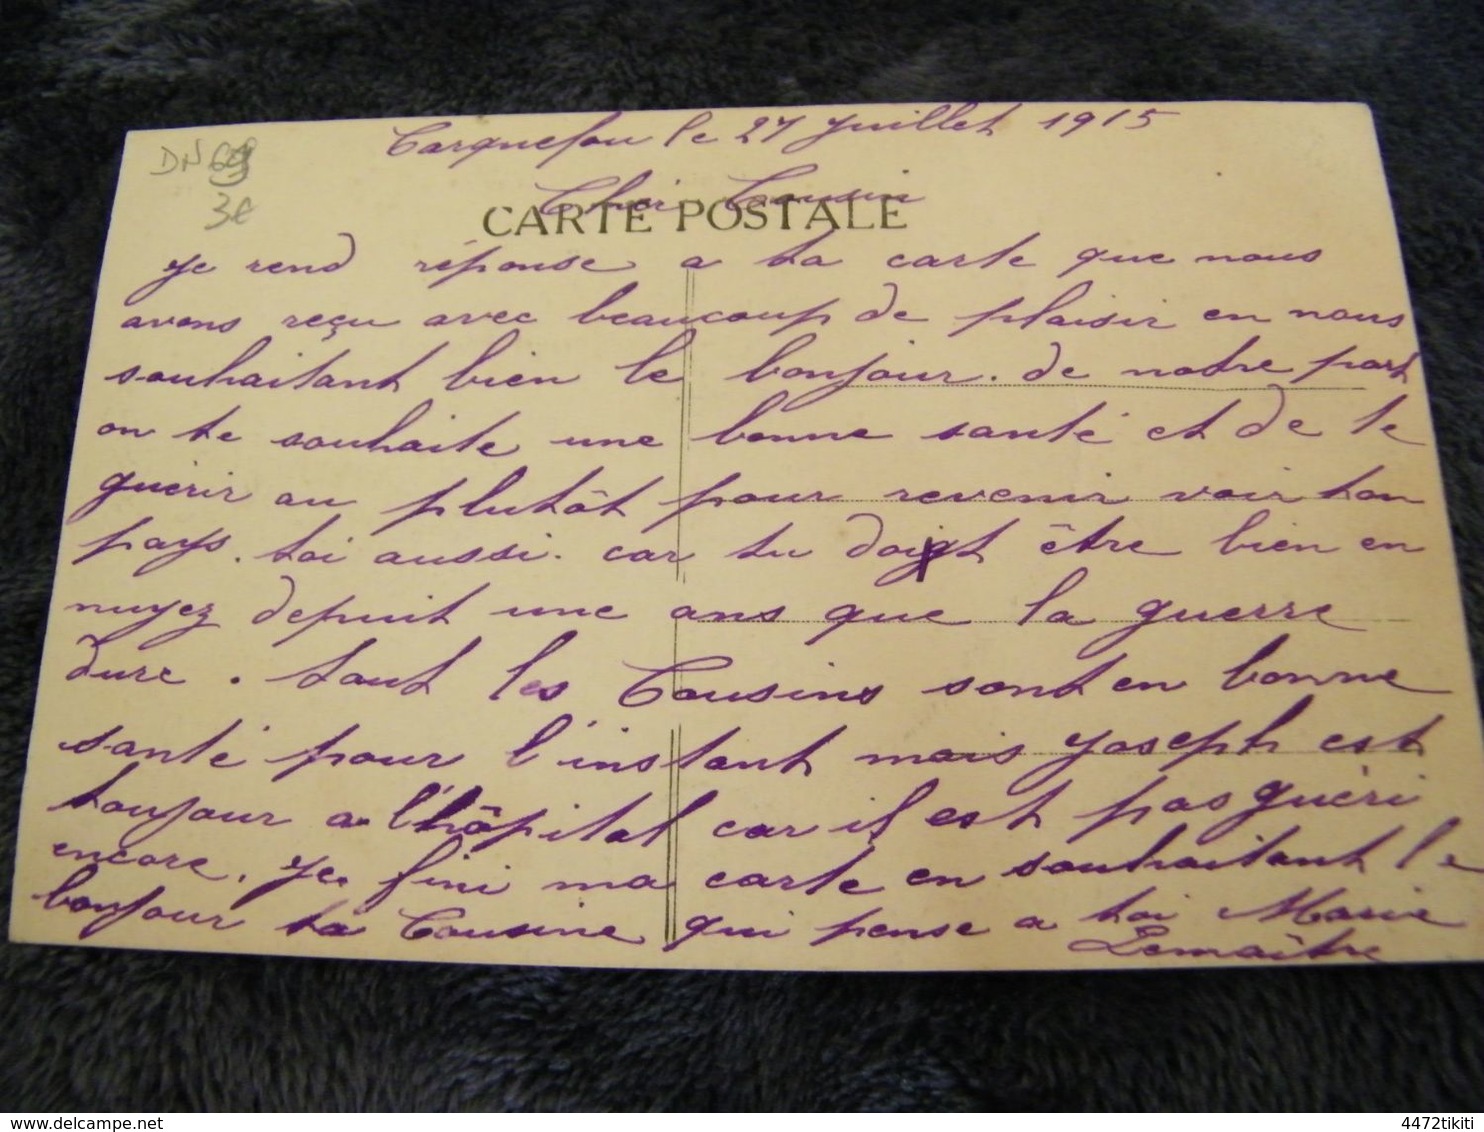 Carquefou le 27 Juillet 1915
DN
3€
Cher Cousin
CARTE POSTALE
Je rend réponse a ta carte que nous
avons reçu avec beaucoup de plaisir en nous
souhaitant bien le bonjour. de notre part
on te souhaite une bonne santé et de te
guérir au plutôt pour revenir voir ton
pays. toi aussi. car tu doit être bien en
nuyez depuit une ans que la guerre
dure. tout les Cousins sont en bonne
santé pour l'instant mais Joseph est
toujour a l'hôpital car il est pas guéri
encore. Je fini ma carte en souhaitant le
bonjour ta Cousine qui pense a toi Marie
Lemaître
4472tikiti